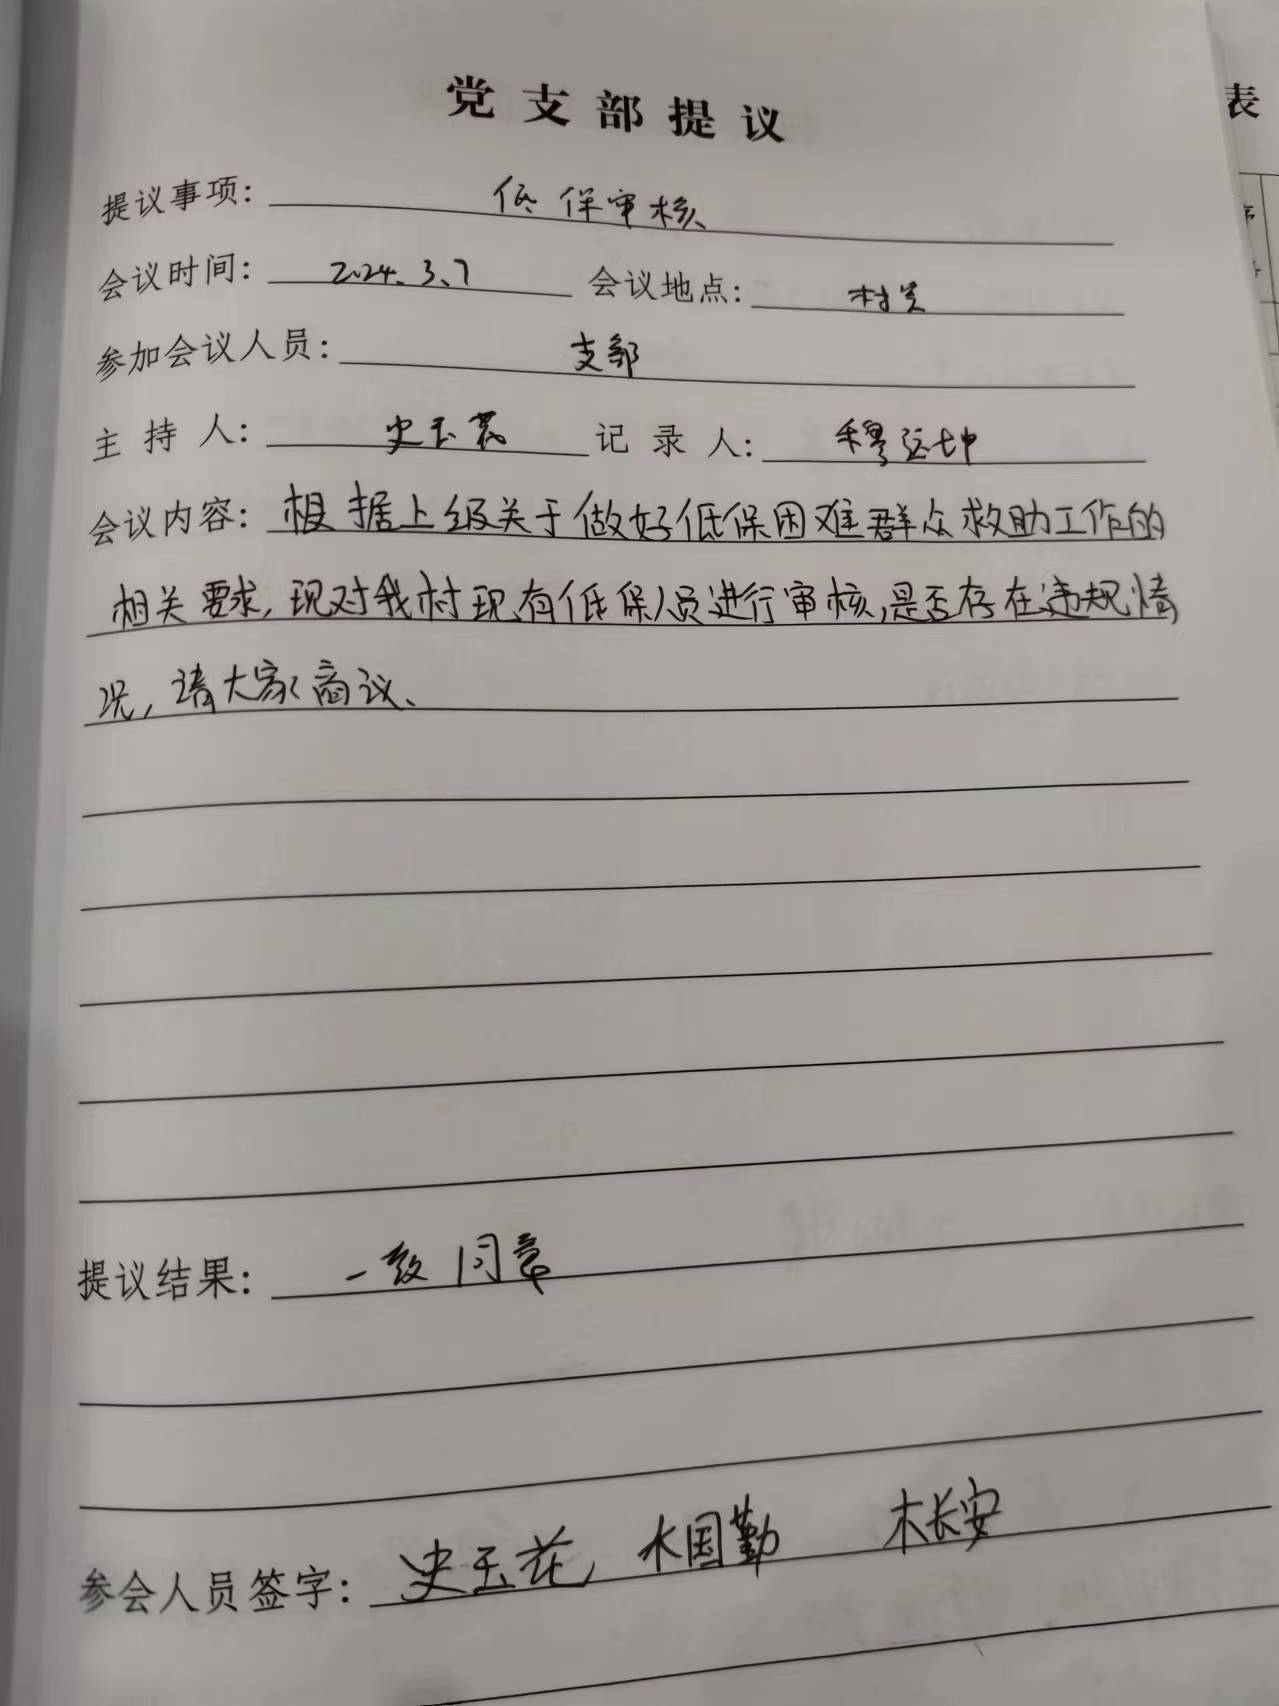 党支部提议
提议事项: 低保审核
会议时间: 2024.3.7 会议地点: 村
参加会议人员: 支部
主持人: 史玉花 记录人: 穆延坤
会议内容: 根据上级关于做好低保困难群众救助工作的
相关要求,现对我村现有低保人员进行审核,是否存在违规情
况,请大家商议、
提议结果: 一致同意
参会人员签字: 史玉花 木国勤 木长安
表